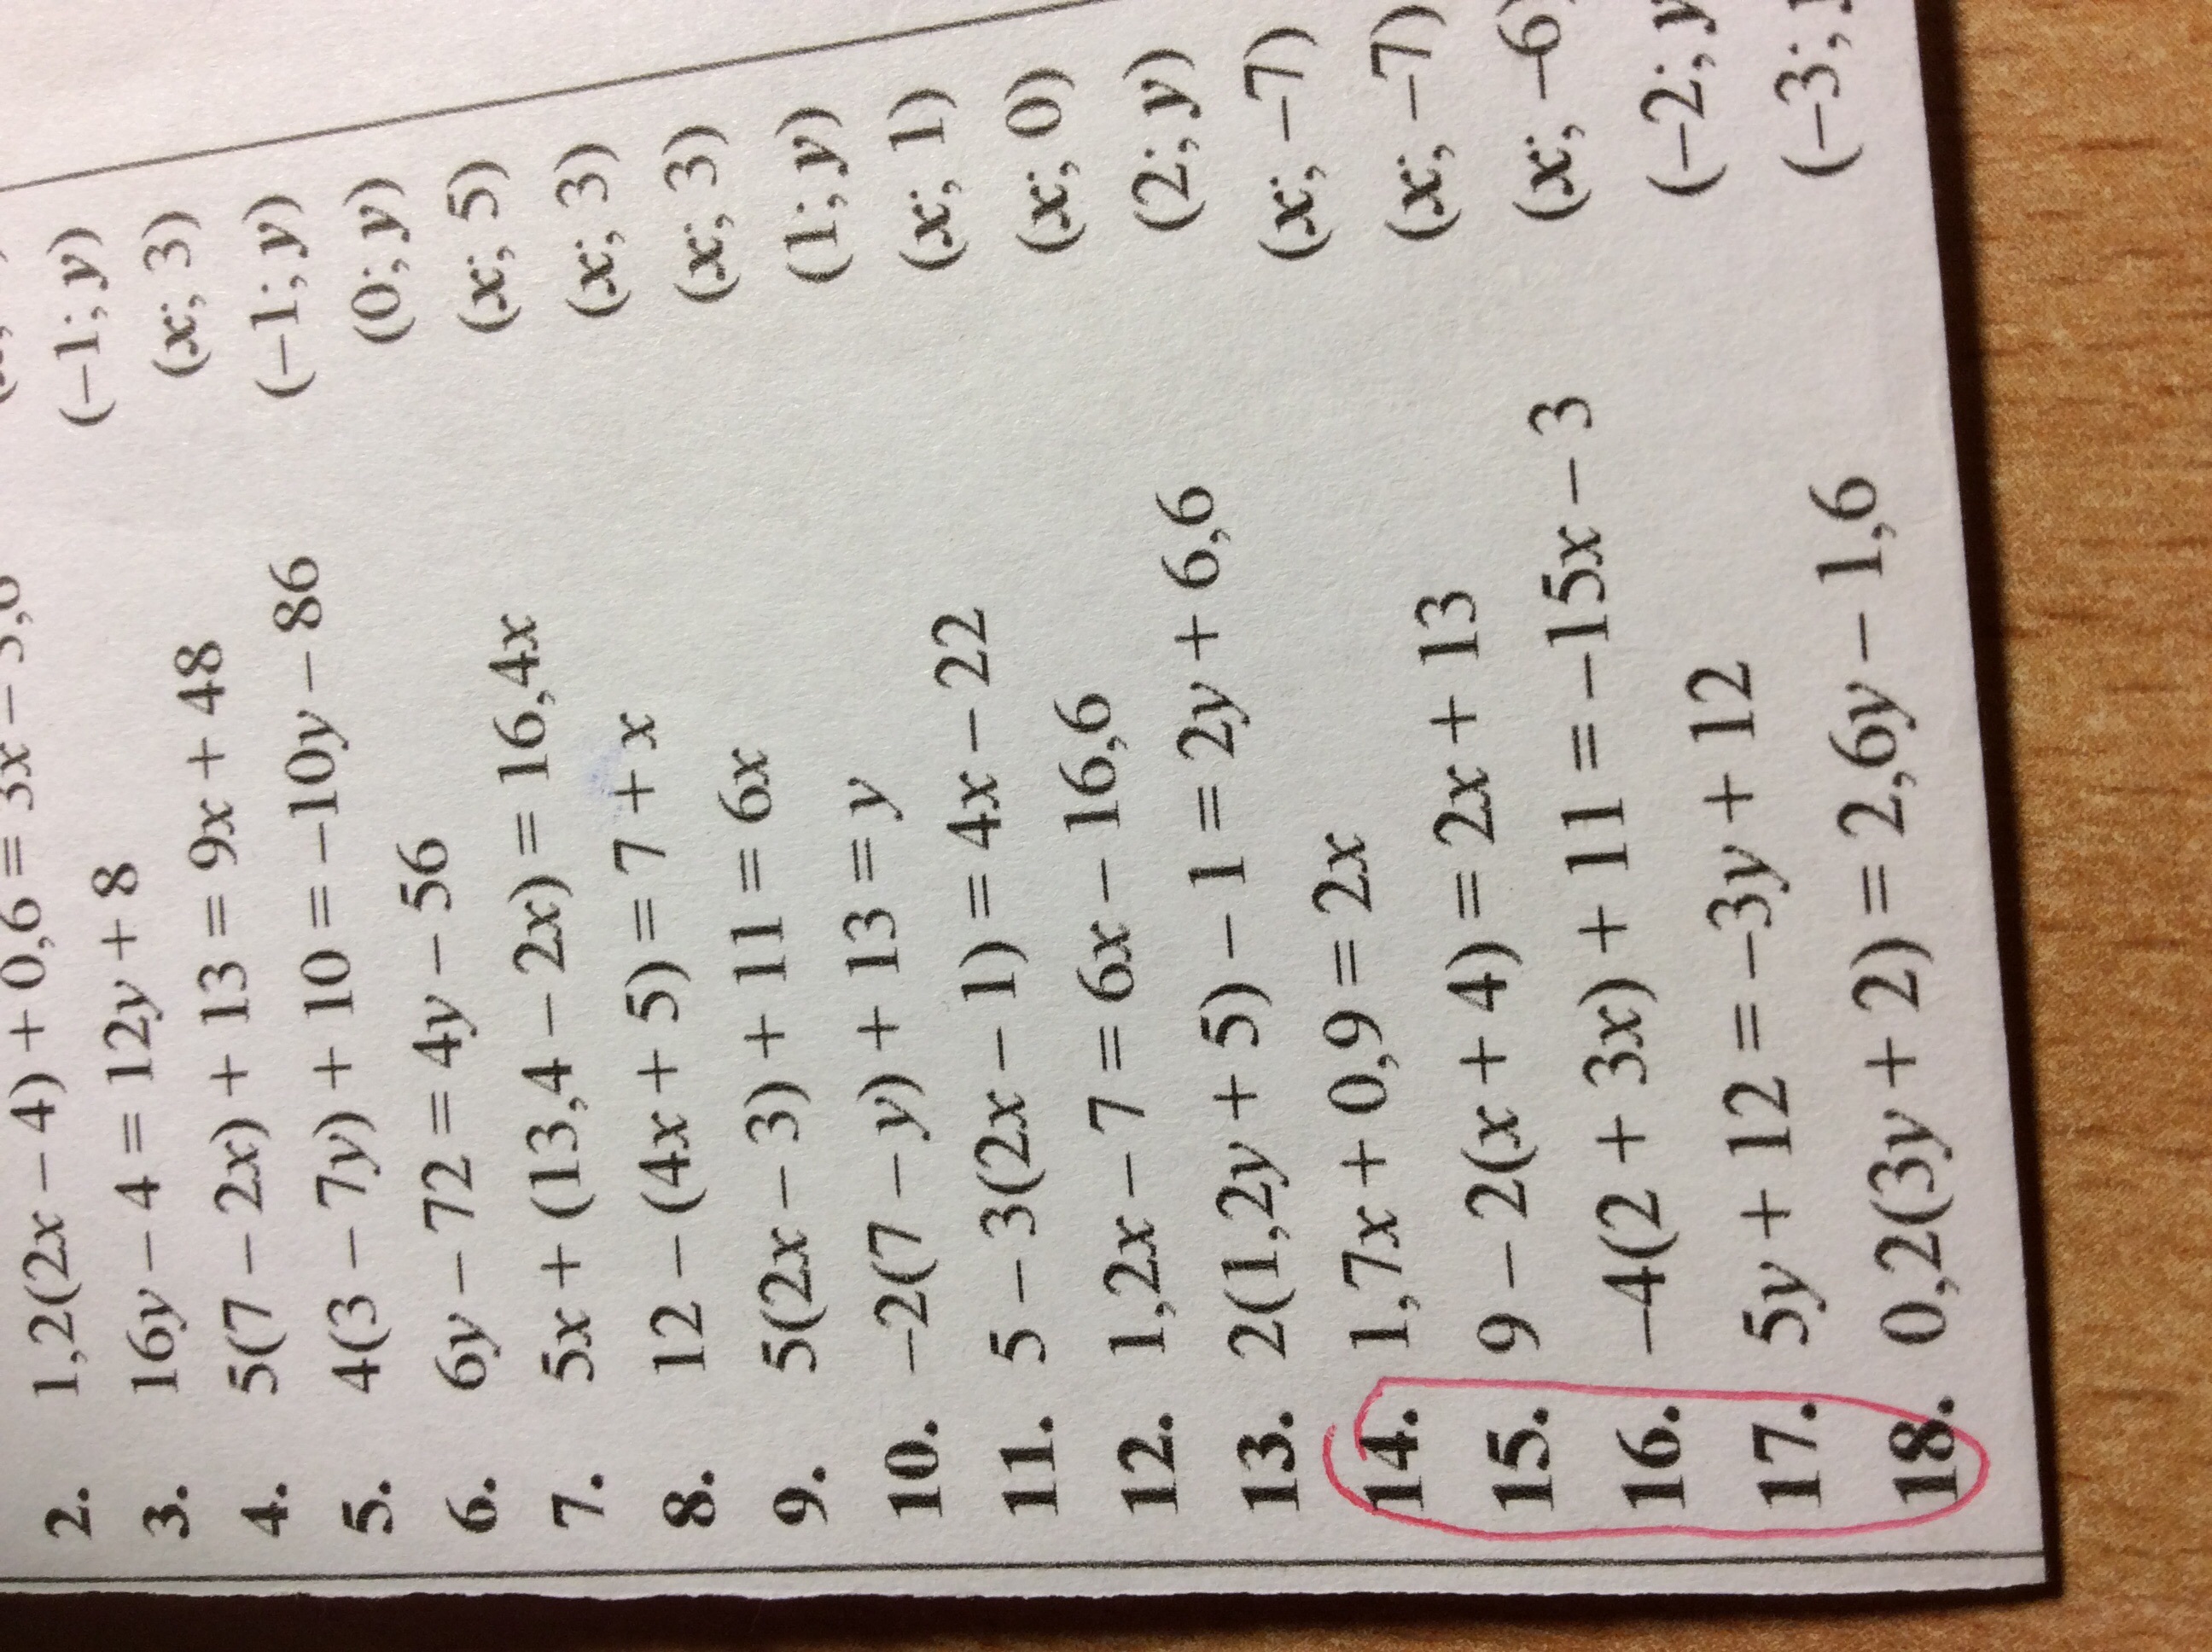 2. 1,2(2x – 4) + 0,6 = 3x –
3. 16y – 4 = 12y + 8 (–1; y)
4. 5(7 – 2x) + 13 = 9x + 48 (x; 3)
5. 4(3 – 7y) + 10 = –10y – 86 (–1; y)
6. 6y – 72 = 4y – 56 (0; y)
7. 5x + (13,4 – 2x) = 16,4x (x; 5)
8. 12 – (4x + 5) = 7 + x (x; 3)
9. 5(2x – 3) + 11 = 6x (x; 3)
10. –2(7 – y) + 13 = y (1; y)
11. 5 – 3(2x – 1) = 4x – 22 (x; 1)
12. 1,2x – 7 = 6x – 16,6 (x; 0)
13. 2(1,2y + 5) – 1 = 2y + 6,6 (2; y)
14. 1,7x + 0,9 = 2x (x; –7)
15. 9 – 2(x + 4) = 2x + 13 (x; –7)
16. –4(2 + 3x) + 11 = –15x – 3 (x; –6)
17. 5y + 12 = –3y + 12 (–2; y
18. 0,2(3y + 2) = 2,6y – 1,6 (–3;